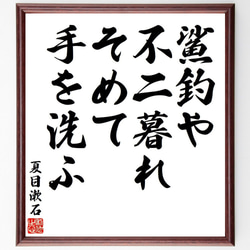 鯊釣や
不二暮れ
そめて
手を洗ふ
夏目漱石